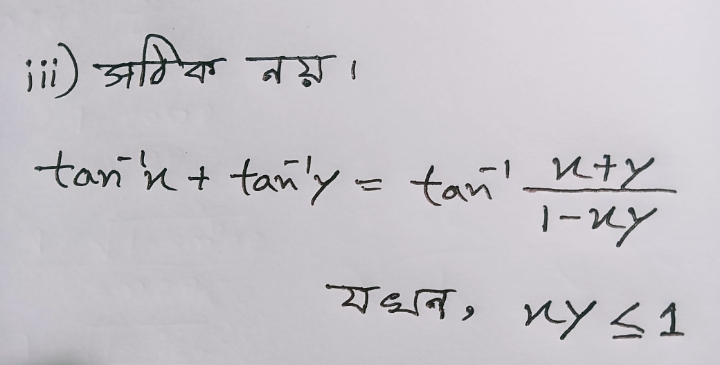 iii) সঠিক নয়।
tan⁻¹x + tan⁻¹y = tan⁻¹ \frac{x+y}{1-xy}
যখন, xy ≤ 1